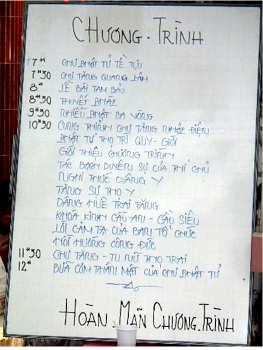 CHƯƠNG . TRÌNH
7H CHƯ PHẬT TỬ TỀ TỰU
7H30 CHƯ TĂNG QUANG LÂM
8H LỄ BÁI TAM BẢO
8H30 THUYẾT PHÁP
9H30 NHIỄU PHẬT BA VÒNG
10H30 CUNG THỈNH CHƯ TĂNG NHẬP ĐIỆN
PHẬT TỬ THỌ TRÌ QUY - GIỚI
GIỚI THIỆU CHƯƠNG TRÌNH
TÁC BẠCH DUYÊN SỰ CỦA THÍ CHỦ
NGHI THỨC DÂNG Y
TĂNG SỰ THỌ Y
DÂNG HUÊ TRAI TĂNG
KHÓA KINH CẦU AN - CẦU SIÊU
LỜI CẢM TẠ CỦA BAN TỔ CHỨC
HỒI HƯỚNG CÔNG ĐỨC
11H30 CHƯ TĂNG - TU NỮ THỌ TRAI
12H BỮA CƠM THÂN MẬT CỦA CHƯ PHẬT TỬ
HOÀN . MÃN CHƯƠNG . TRÌNH